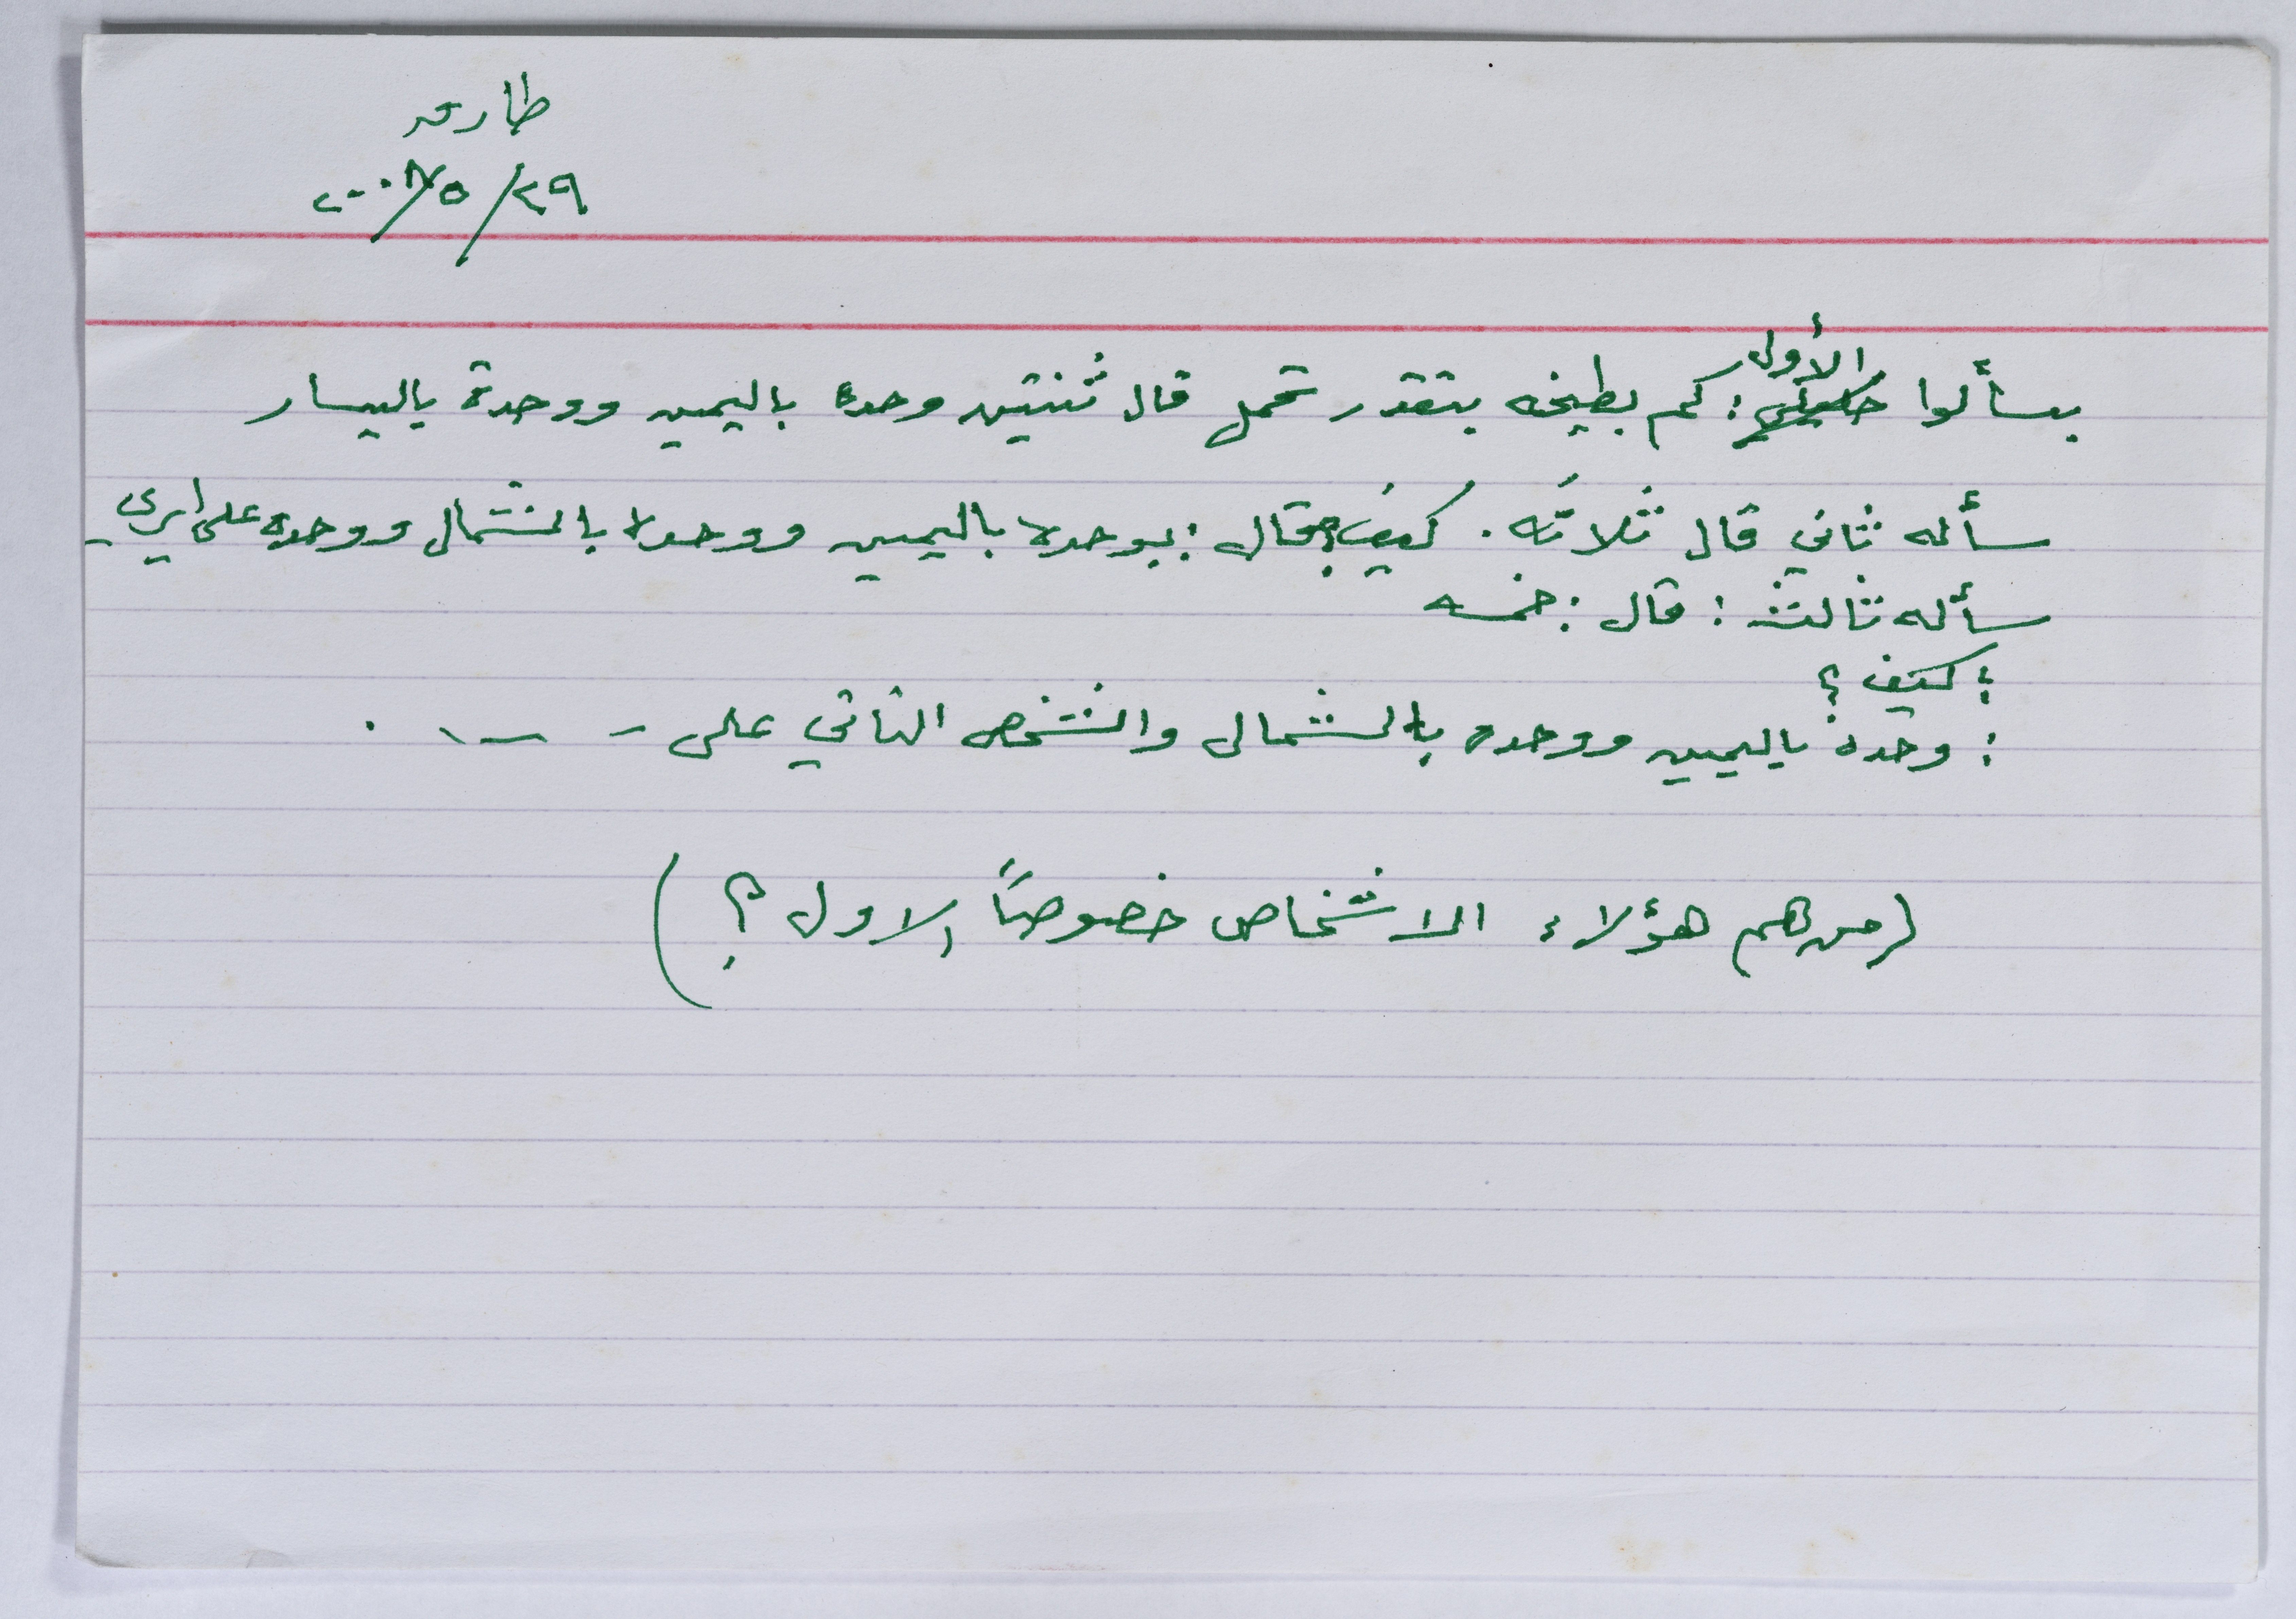 طارق
٢٩/٥/٢٠٠٨
الأول
بسألوا : كم بطيخه بتقدر تحمل قال ثنتين وحده باليمين ووحدة باليسار
سأله ثاني قال ثلاثه . كيف قال : وحده باليمين ووحده بالشمال ووحده على ايري
سأله ثالث : قال : خمسه
: كيف ؟
: وحدة باليمين ووحده بالشمال والشخص الثاني على - - - - .
(من هم هؤلاء الاشخاص خصوصاً الاول ؟)